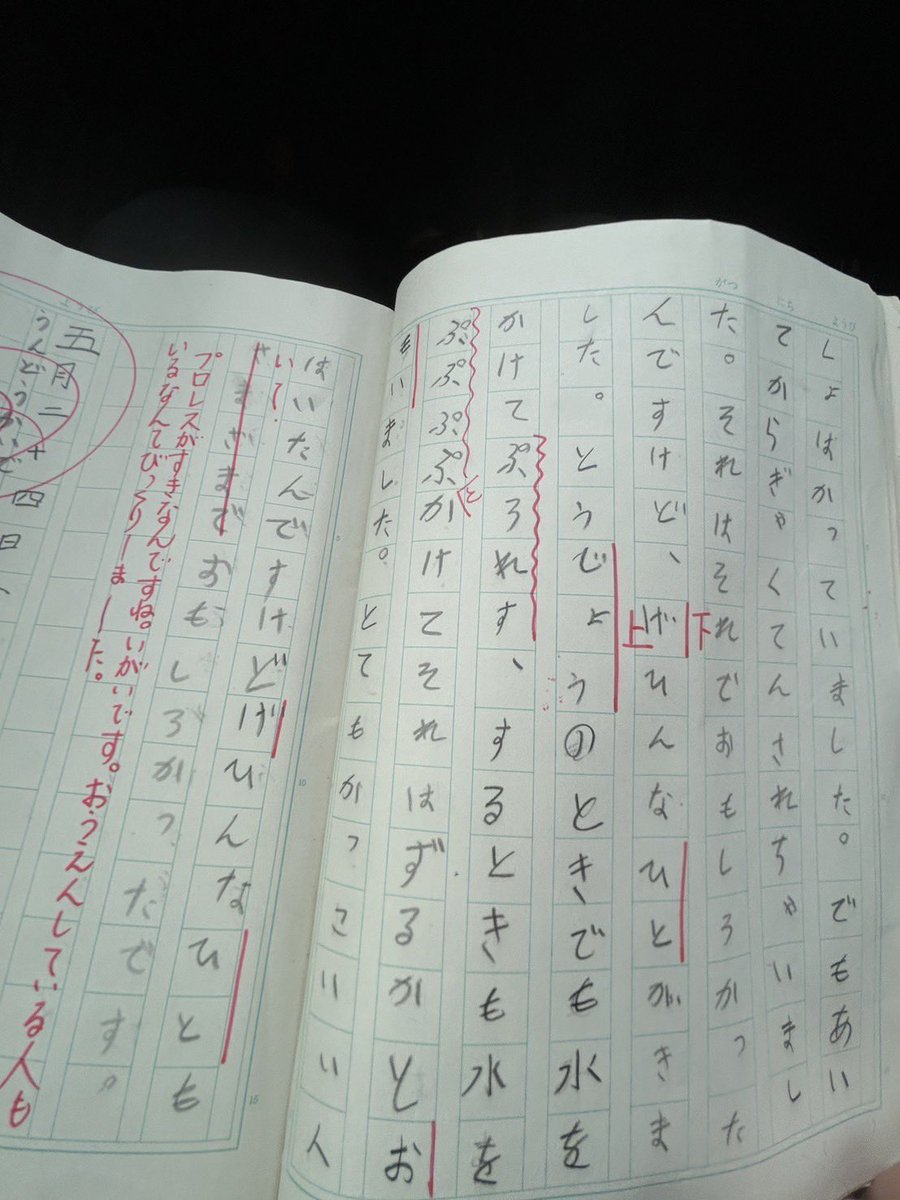 がつ にち ようび
しょはかっていました。でもあい
てからぎゃくてんされちゃいまし
た。それはそれでおもしろかった
んですけど、げひんなひとがきま
下
上
した。とうでょうのときでも水を
かけてぷろれす、するときも水を
ぷぷぷぷかけてそれはずるかとお
と
もいました。とてもかっこいい人
はいたんですけどげひんなひとも
さまざまでおもしろかったです。
プロレスがすきなんですね。いがいです。おうえんしている人も
いるなんてびっくりしました。
ようび
五月二十四日、
うんどうかいで